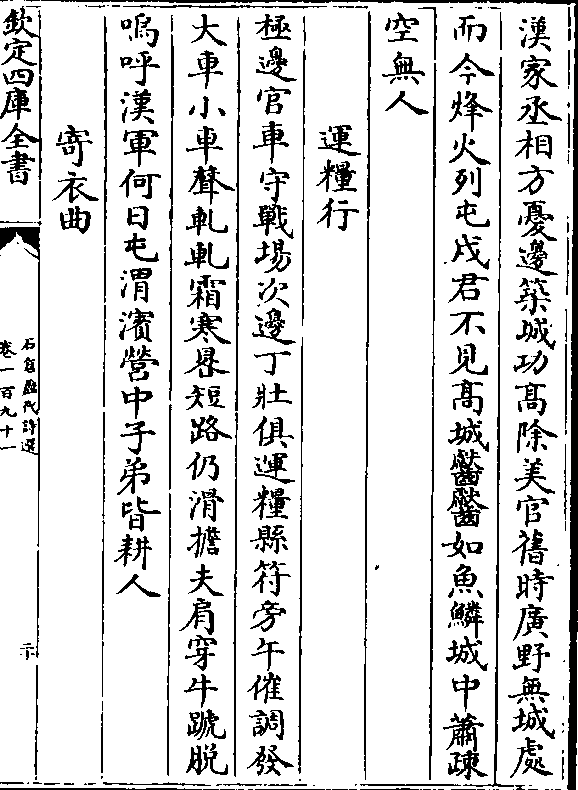 漢家丞相方憂邊築城功髙除美官舊時廣野無城處
而今烽火列屯戍君不見髙城齾齾如魚鱗城中蕭疎
空無人
運糧行
極邊官車守戰場次邊丁壯俱運糧縣符旁午催調發
大車小車聲軋軋霜寒晷短路仍滑擔夫肩穿牛蹏脱
嗚呼漢軍何日屯渭濱營中子弟皆耕人
寄衣曲
欽定四庫全書
石倉歷代詩選
卷一百九十一